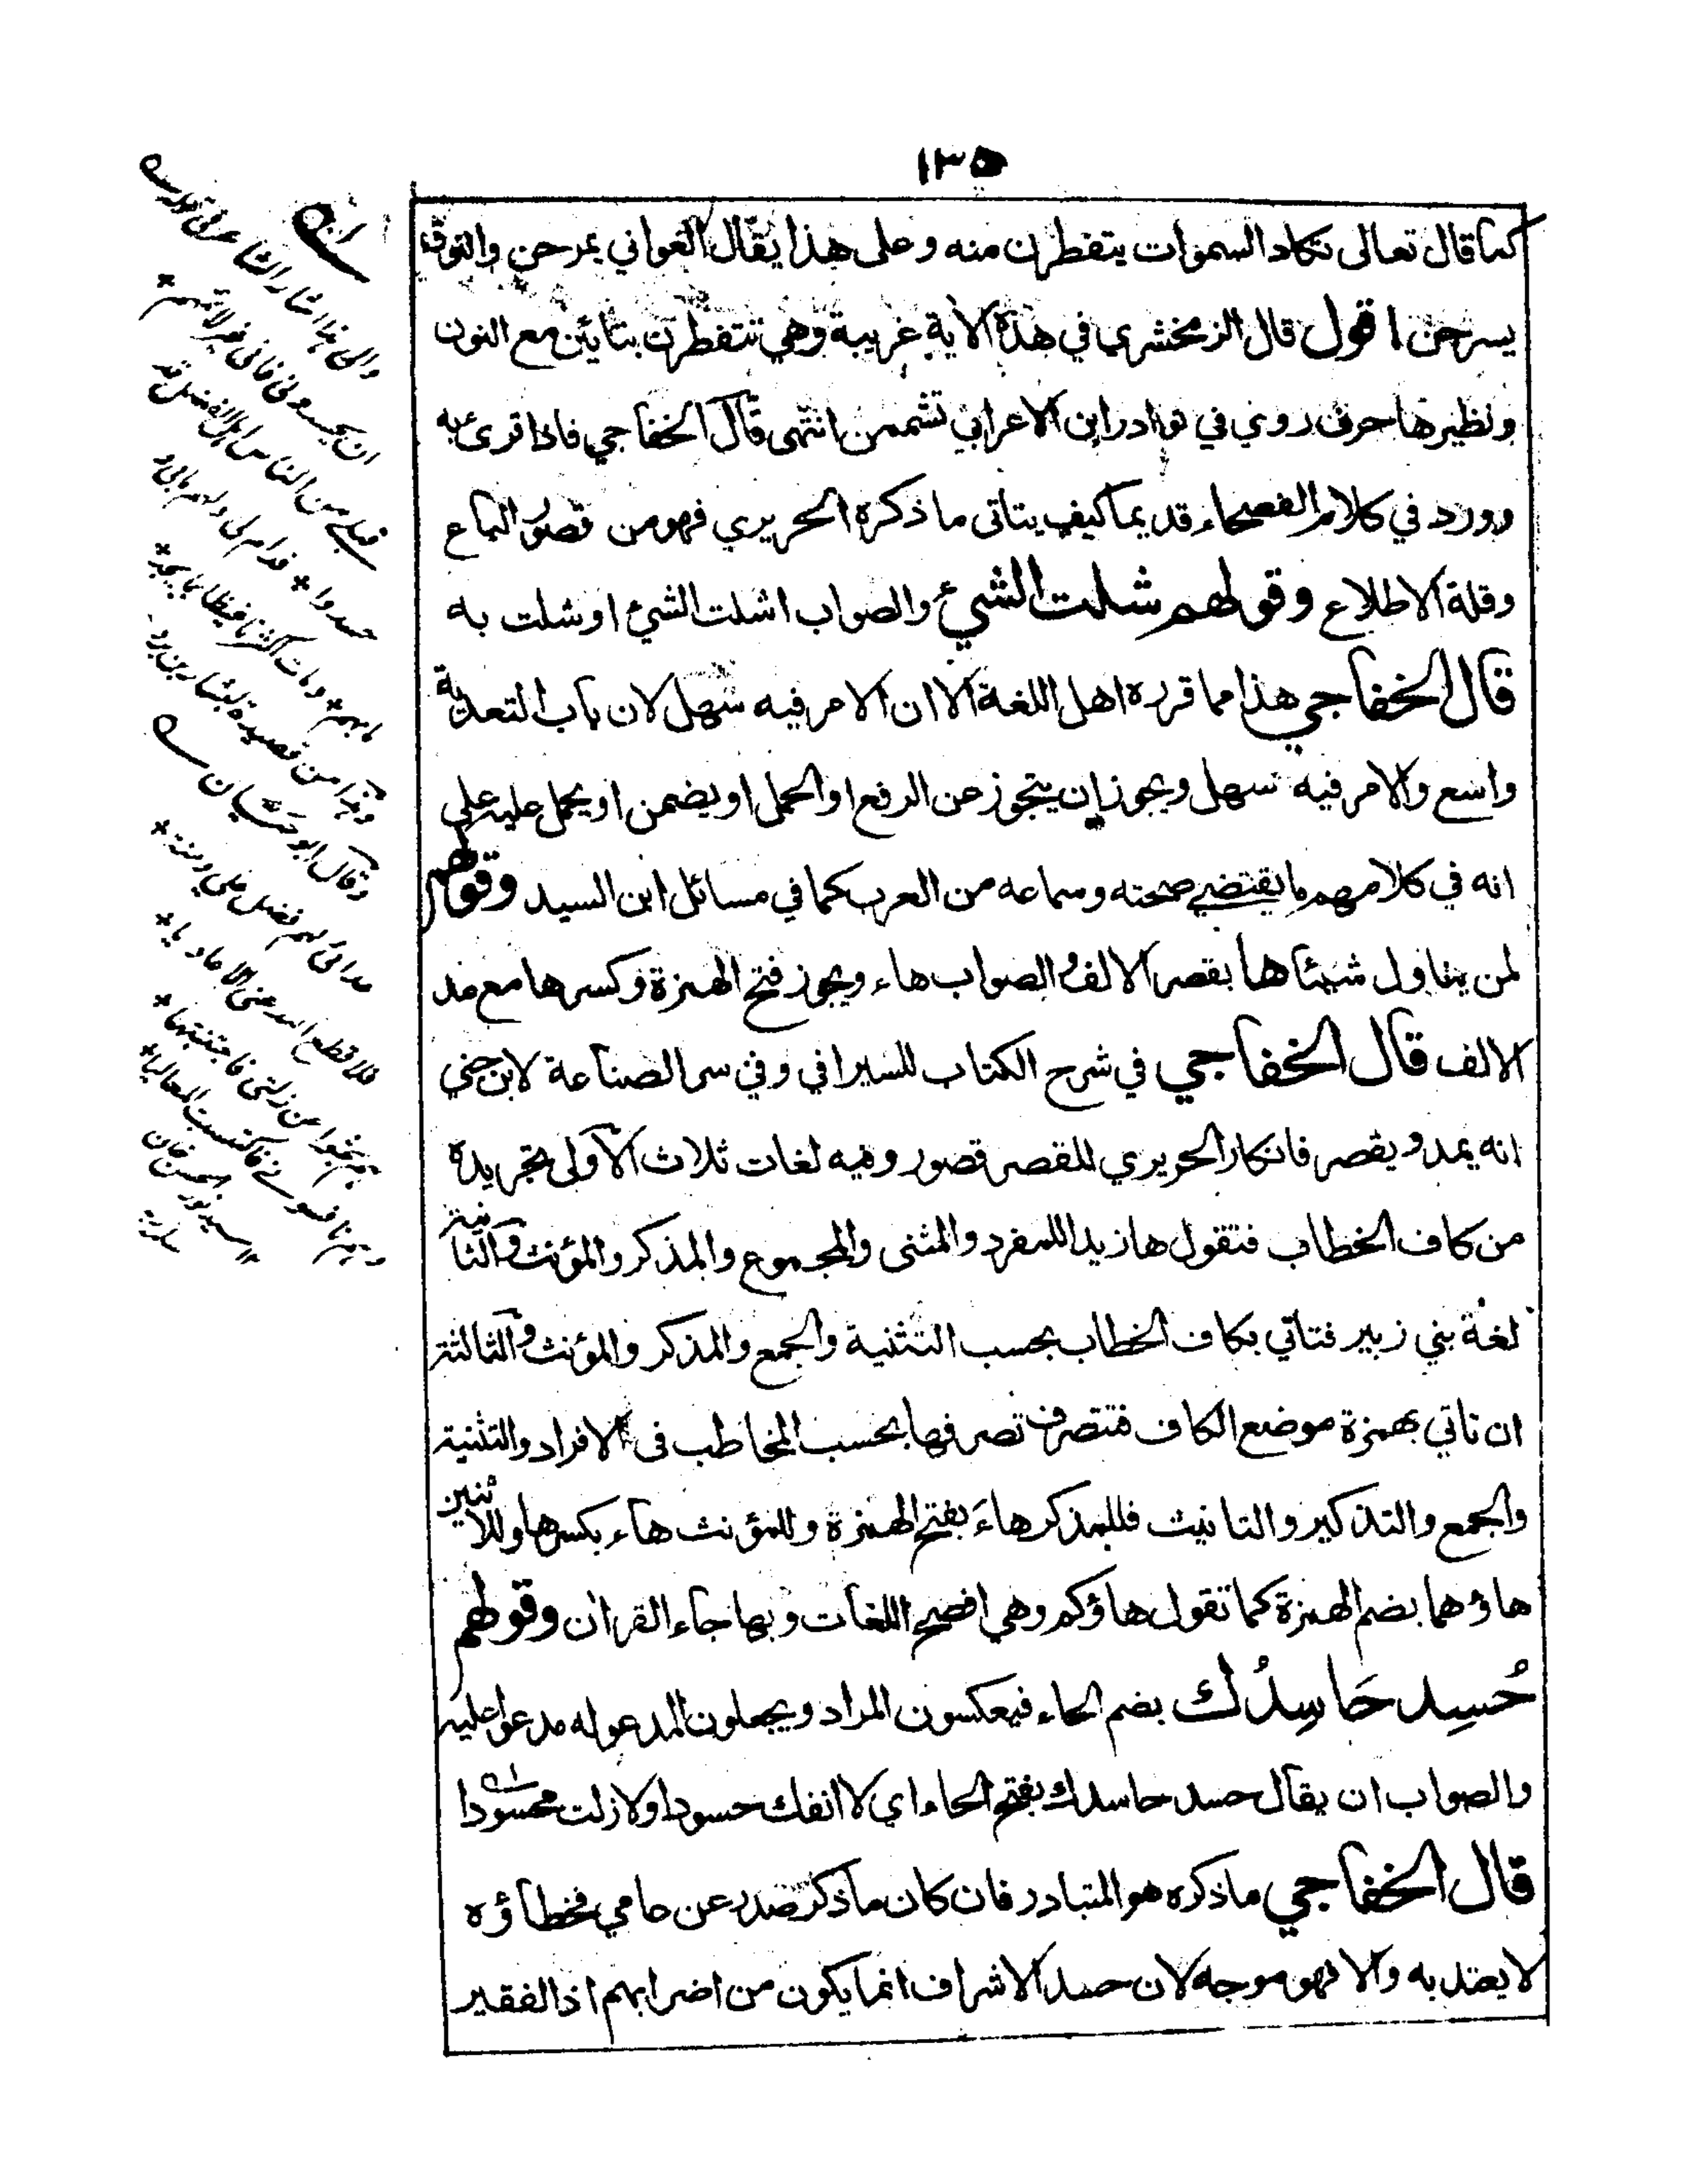 ١٣٥
كما قال تعالى تكاد السموات يتفطرن منه وعلى هذا يقال الغواني يمرحن والنوق
يسرحن اقول قال الزمخشري في هذه الاية غريبة وهي تتفطرن بتائين مع النون
ونظيرها حرف روي في نوادر ابن الاعرابي تشممن انتهى قال الخفاجي فاذا قرئ به
وورد في كلام الفصحاء قديما كيف يتاتى ما ذكره الحريري فهو من قصور الباع
وقلة الاطلاع وقولهم شلت الشيء والصواب اشلت الشيء او شلت به
قال الخفاجي هذا مما قرره اهل اللغة الا ان الامر فيه سهل لان باب التعدية
واسع والامر فيه سهل ويجوز ان يتجوز عن الرفع او الحمل او يضمن او يحمل عليه على
انه في كلامهم ما يقتضي صحته وسماعه من العرب كما في مسائل ابن السيد وقولهم
لمن يناول شيئا ها بقصر الالف والصواب هاء ويجوز فتح الهمزة وكسرها مع مد
الالف قال الخفاجي في شرح الكتاب للسيرافي وفي سر الصناعة لابن جني
انه يمد ويقصر فانكار الحريري للقصر قصور وفيه لغات ثلاث الاولى تجريده
من كاف الخطاب فتقول ها زيدا للمفرد والمثنى والمجموع والمذكر والمؤنث والثانية
لغة بني زبير فتاتي بكاف الخطاب بحسب التثنية والجمع والمذكر والمؤنث والثالثة
ان تاتي بهمزة موضع الكاف فتصرف تصرفها بحسب المخاطب في الافراد والتثنية
والجمع والتذكير والتانيث فللمذكر هاءَ بفتح الهمزة وللمؤنث هاء بكسرها وللاثنين
هاؤهما بضم الهمزة كما تقول هاؤكم وهي افصح اللغات وبها جاء القران وقولهم
حُسِد حَاسِدُك بضم الحاء فيعكسون المراد ويجعلون المدعو له مدعوا عليه
والصواب ان يقال حسد حاسدك بفتح الحاء اي لا انفك حسودا ولا زلت محسودا
قال الخفاجي ما ذكره هو المتبادر فان كان ما ذكر صدر عن حامي فخطاؤه
لا يعتد به والا فهو موجه لان حسد الاشراف انما يكون من اضرابهم اذ الفقير
والى هذا اشار الشاعر في قوله
ان يحسدوني فاني غير لائمهم *
قبلي من الناس اهل الفضل قد
حسدوا * فدام لي ولهم ما بي و
ما بهم * ومات اكثرنا غيظا بما يجد *
وهذا من قصيدة لبشار بن برد
وقال ابو حيان
عداتي لهم فضل علي ومنة *
فلا قطع الله عني الاعاديا *
هم بحثوا عن زلتي فاجتنبتها *
وهم نافسوني فاكتسبت المعاليا *
السيد نور الحسن خان